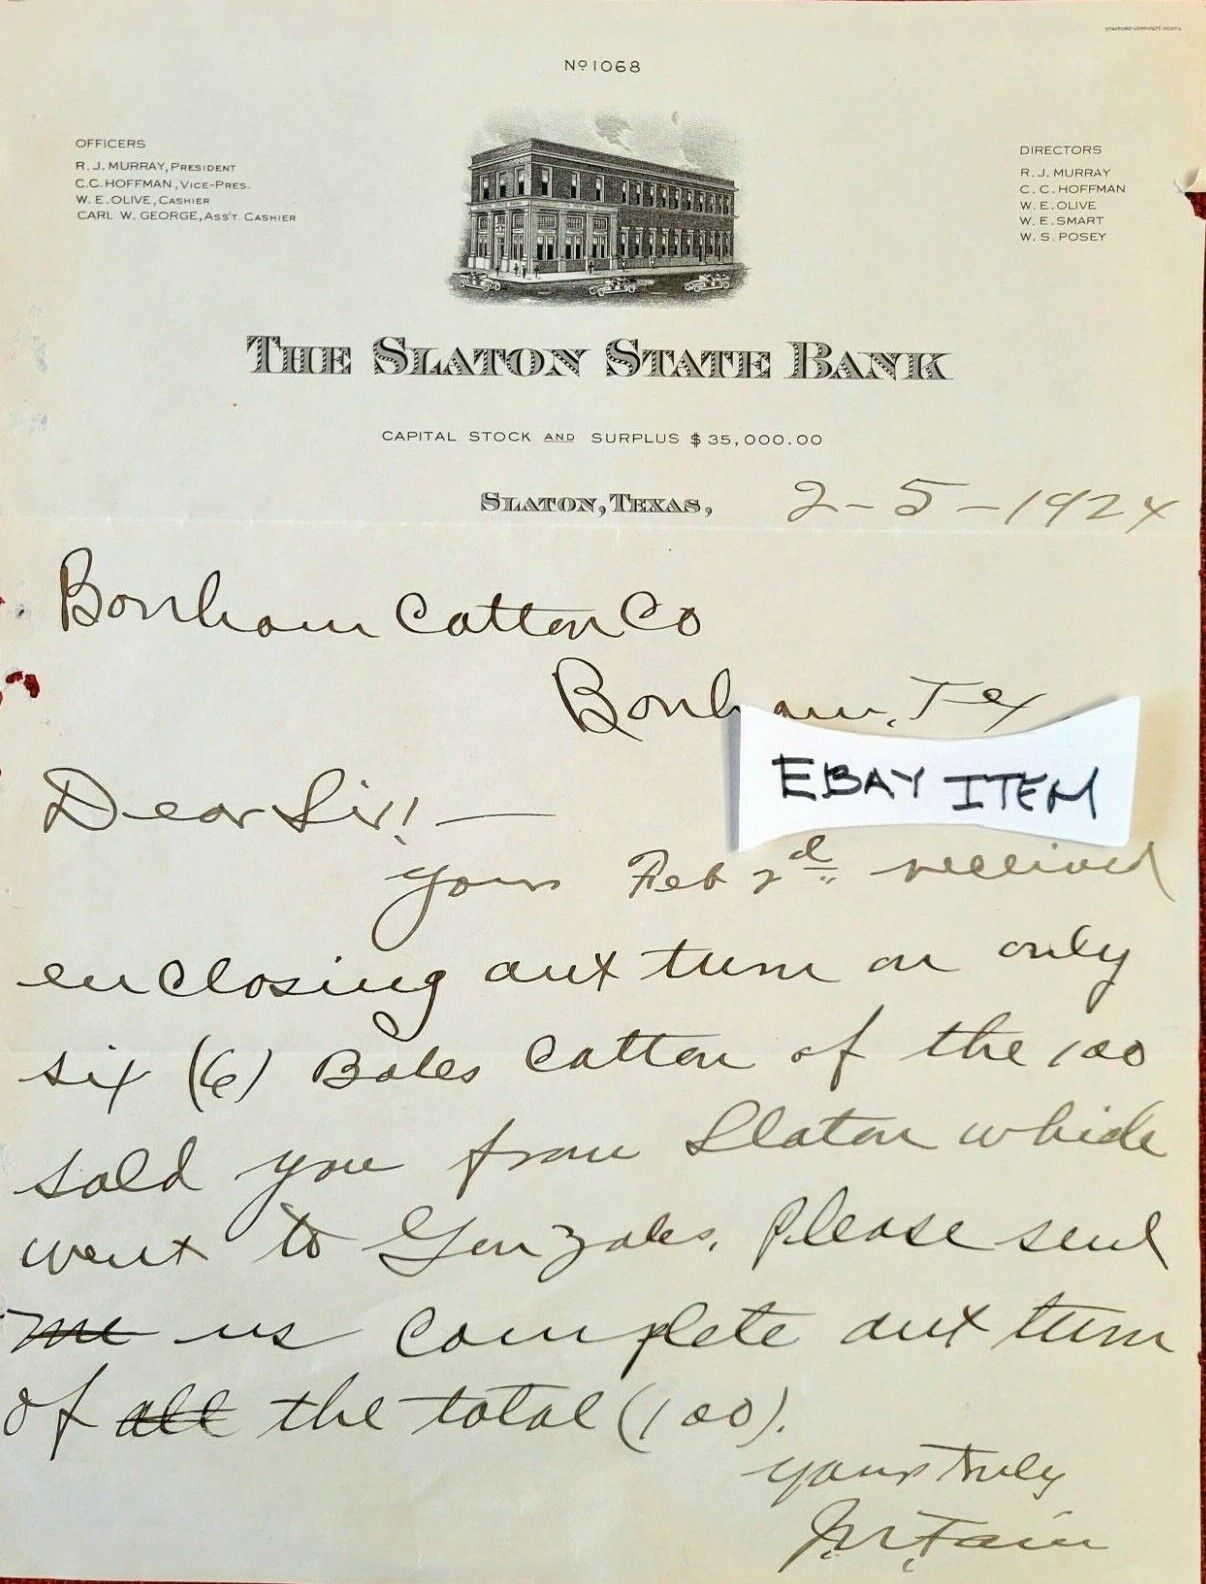 No 1068
OFFICERS
R. J. MURRAY, PRESIDENT
C. C. HOFFMAN, VICE-PRES.
W. E. OLIVE, CASHIER
CARL W. GEORGE, ASS'T CASHIER
DIRECTORS
R. J. MURRAY
C. C. HOFFMAN
W. E. OLIVE
W. E. SMART
W. S. POSEY
THE SLATON STATE BANK
CAPITAL STOCK AND SURPLUS $35,000.00
SLATON, TEXAS, 2-5-1924
Bonham Cotton Co
Bonham, Tex.
EBAY ITEM
Dear Sir! —
Yours Feb 2d received
enclosing out turn on only
six (6) Bales Cotton of the 100
sold you from Slaton which
went to Gonzales. Please send
me us complete out turn
of all the total (100).
yours truly
Fain